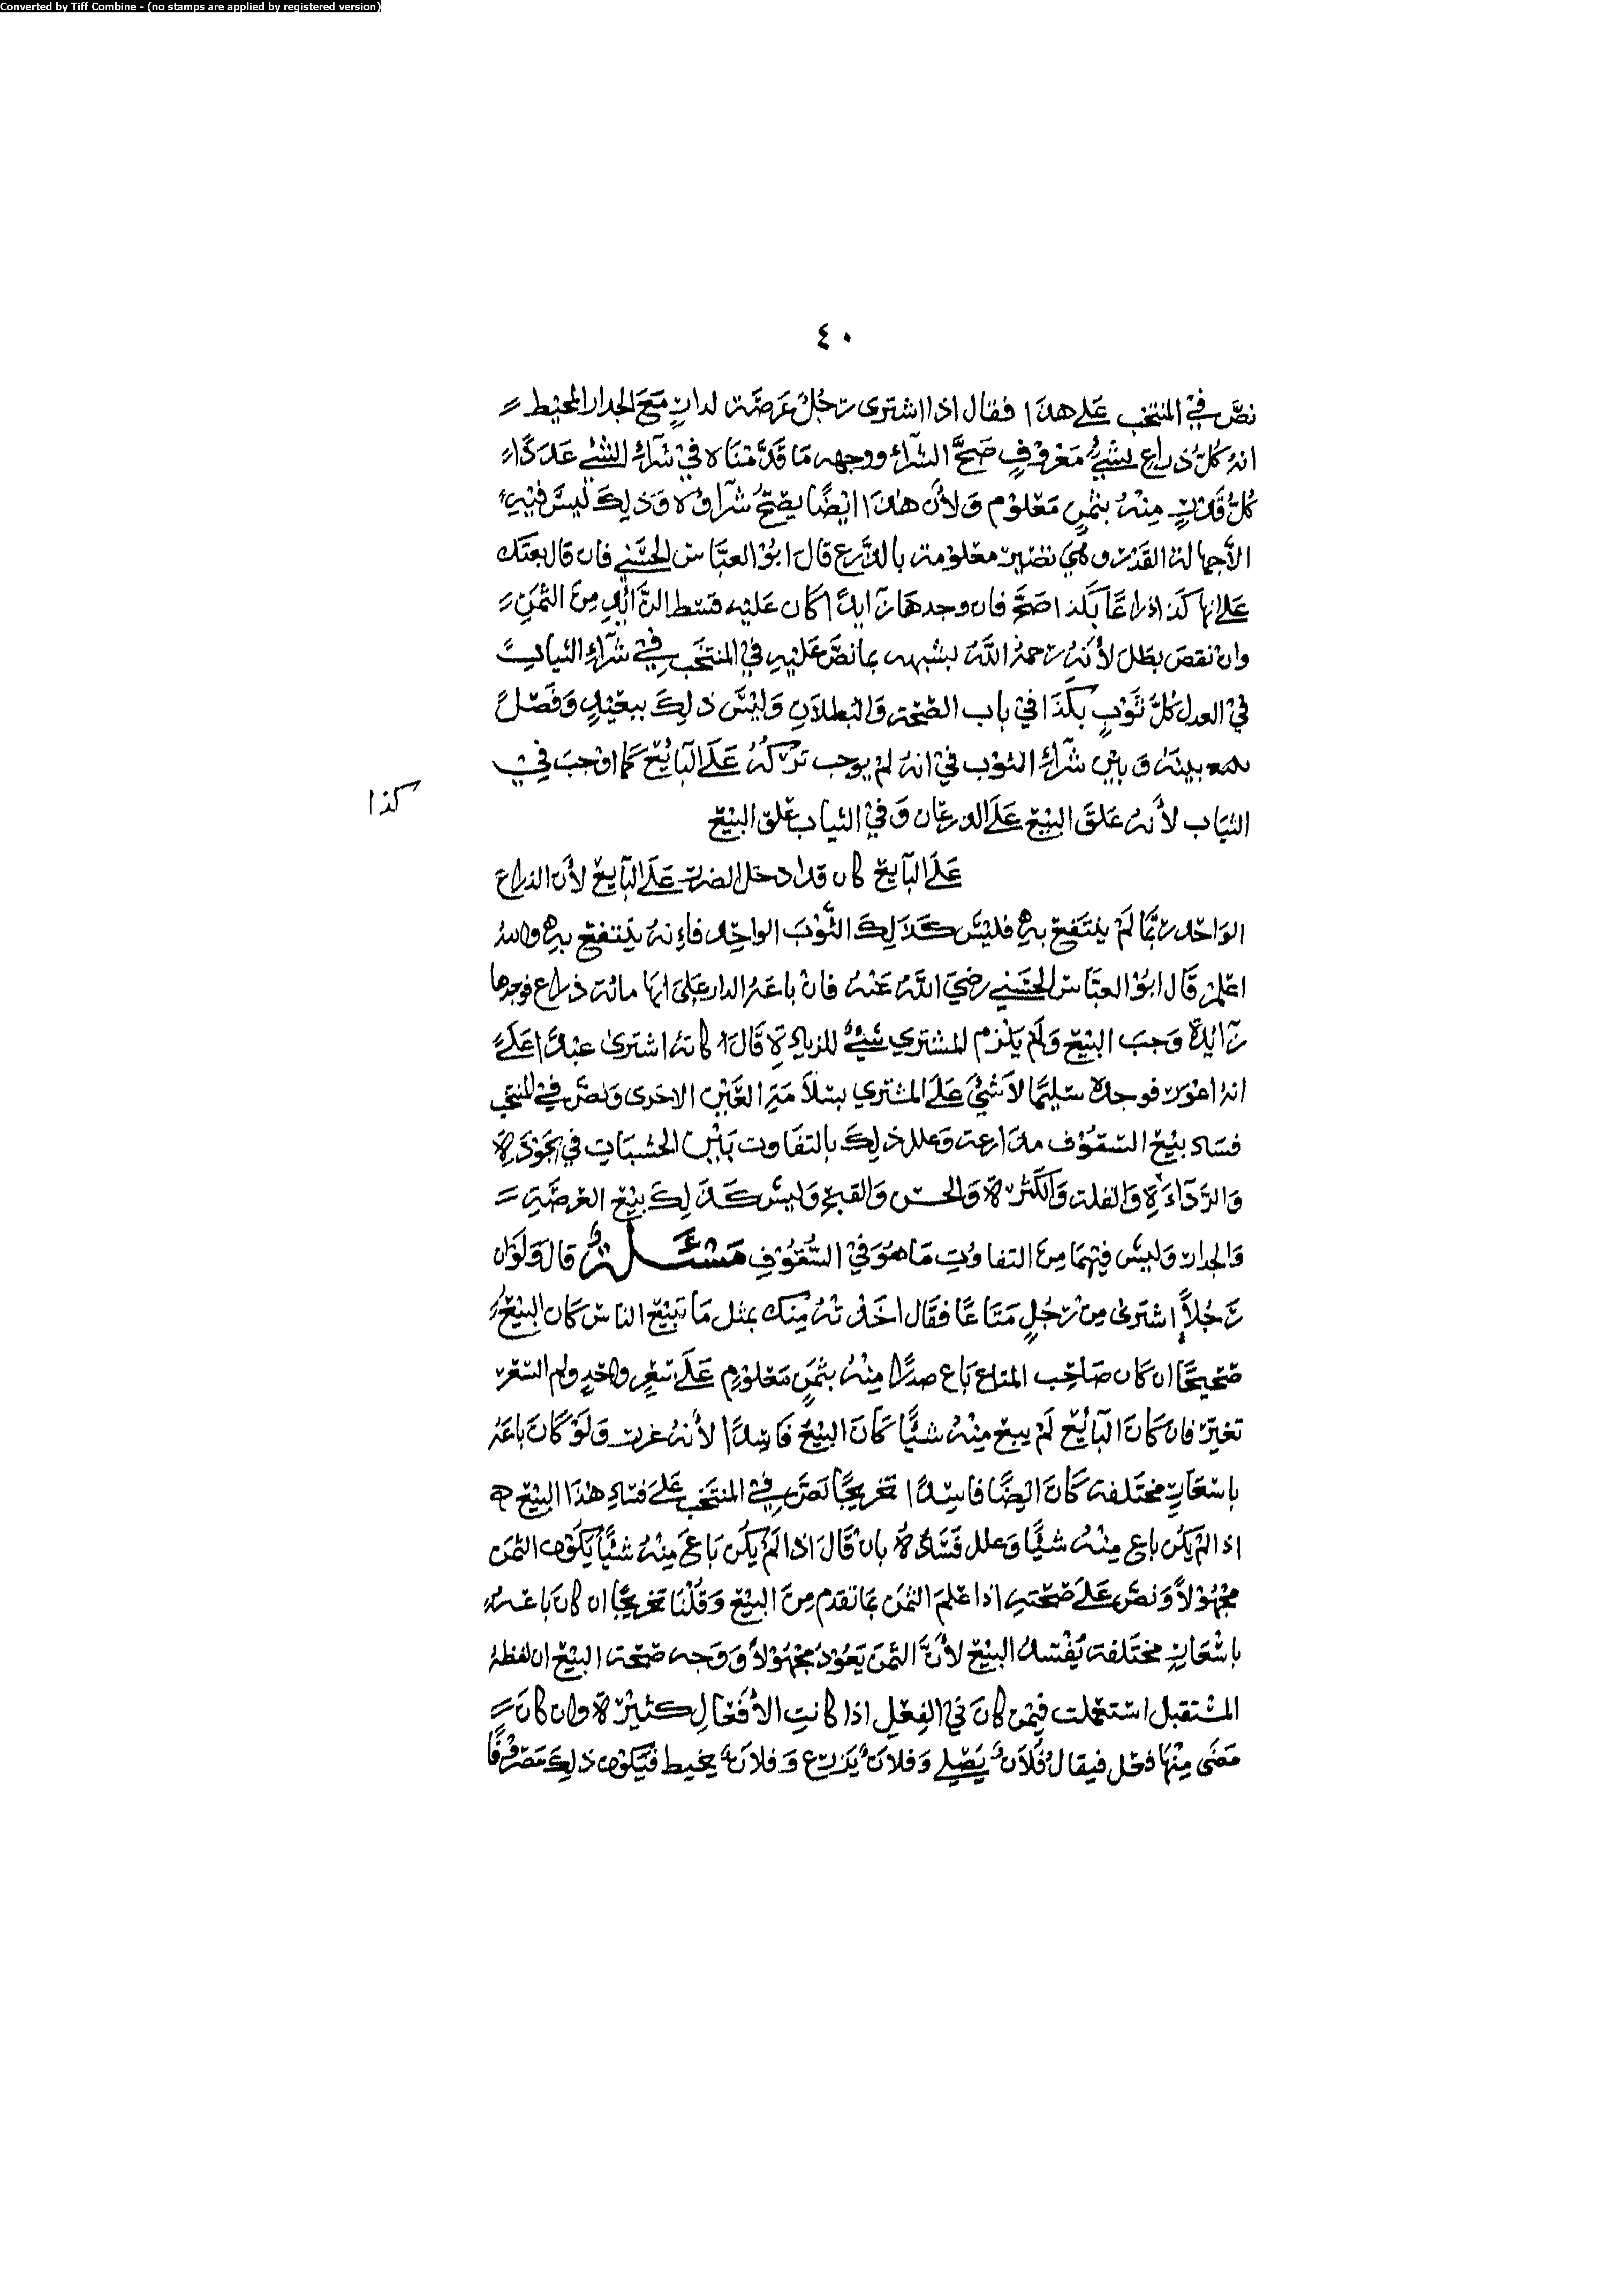 Converted by Tiff Combine - (no stamps are applied by registered version)
٤٠
نصَّ في المنتخب على هذا فقال اذا اشترى رجُلٌ عَرصَة لدارٍ مَعَ الجدار المحيط
انهُ كلّ ذراعٍ بشيءٍ مَعْروفٍ صَحَّ الشراء ووجهه مَا قدَّمْنَاه في شرآء الشئي عَدَدًا
كُلُّ قَدْرٍ مِنْهُ بثمنٍ مَعْلوُمٍ وَلأن هٰذا ايْضًا يصّحُّ شرآؤه وَذلِكَ ليْسَ فيْهِ
الّاجهالة القدر وهي تصير معلوُمة بالذّرع قال ابوُ العبّاس الحسَني فان قال بعتك
عَلى انها كذا ذراعًا بكذا صَحَّ فان وجدهَا زايدًا كان عَليْه قسط الزّايدِ مِنَ الثّمَن
وان نقصَ بطَل لأنهُ رحمهُ اللّهُ يشبهه بما نصَّ عَليْهِ في المنتخَب في شرآءِ الثياب
في العدل كلّ ثوْبٍ بكذَا في باب الصّحّة والبُطلان وَليْسَ ذلكَ ببعيْدٍ وَفَصْلٌ
بينهُ وَبيْن شرآءِ الثوْب في انهُ لم يوجب ترْكهُ عَلَى البَآئعِ كما اوْجبَ في
الثيَاب لأنهُ عَلقَ البيْع عَلَى الذرعان وَفي الثياب عَلق البيْع
كذا
عَلَى البآيع كان قد ادخل الضرر عَلَى البآيع لأن الذراع
الوَاحد رُبَّما لَمْ ينتَفع بهِ فليْسَ كذلِكَ الثوْبَ الواحِد فإنهُ ينتفع بهِ والله
اعلم قَال ابوُ العبّاس الحسَني رضيَ اللّهُ عَنْهُ فانْ باعَهُ الدار على انها مائة ذراع فوجدها
زآئِدَةً وَجبَ البيْع وَلَم يَلْزم المشتري شيْءٌ للزيادةِ قَال كانهُ اشترى عبْدًا عَلَى
انهُ اعْوَر فوجدَه سَليْمًا لاَ شَيْءَ عَلَى المشتري بسَلاَمَة العَيْن الاخرى وَنصَّ في المنتخب
فسَاد بيْع السّقوُف مذارعة وَعلل ذلكَ بالتفَاوت بَيْن الخشبَاتِ في الجوْدَةِ
وَالرّدَآءَةِ وَالقلة وَالكَثرَة وَالحسْن وَالقبح وَليسَ كذلِكَ بيْع العَرصَةِ
وَالجدار وَليسَ فيْهمَا مِنَ التفاوُتِ مَا هوَ في السُّقوُفِ مَسْئَلَةٌ قال وَلَوْ ان
رَجُلاً اشترى مِنْ رَجُلٍ مَتَاعًا فقَال اخَذْتهُ مِنْك بمثل مَا تبيْع الناس كان البيْعُ
صَحيْحًا ان كان صَاحِب المتاع بَاع صدرًا مِنْهُ بثَمنٍ مَعْلوُمٍ عَلَى سِعْرٍ واحدٍ ولم السّعر
تغيرّ فان كانَ البآئع لَمْ يبع مِنْهُ شيْئًا كان البَيْع فَاسِدًا لأنهُ غرر وَلَوْ كَانَ بَاعَهُ
باسْعَارٍ مختَلفة كانَ ايضًا فاسِدًا تخريجًا نصَّ في المنتخَب عَلَى فسَاد هٰذا البيْع
اذا لمْ يكُن باع مِنْهُ شيْئًا وَعلل فسَادهُ بانْ قَالَ اذا لَم يكُن بَاعَ مِنْهُ شيْئًا يكَوْن الثّمَن
مجْهُوْلاً وَنصَّ عَلَى صحّتهِ اذا عَلمَ الثمَن بما تقدم مِنَ البَيْع وَقُلْنا تخريجًا ان كانَ باعَهُ
باسْعَارٍ مختَلفة يَفْسد البيْع لأنَّ الثّمنَ يعُودُ مجْهوْلاً وَوَجه صحّة البيْع ان لفظهُ
المسْتقبل اسْتعملت فيْمن كانَ في الفِعل اذا كانت الأفعَال كثيرَة وان كانَ
مَضَى مِنْهَا فعْل فيقال فُلاَنٌ يصَلي وَفلانٌ يَزرَع وَفلانٌ يخيط فيَكوْن ذلِكَ مَصْرُوْفًا